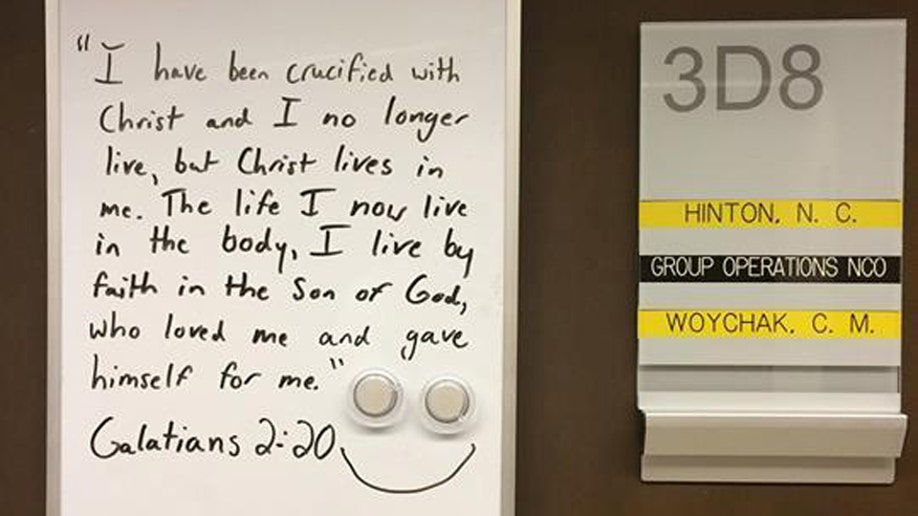 "I have been crucified with
Christ and I no longer
live, but Christ lives in
me. The life I now live
in the body, I live by
faith in the Son of God,
who loved me and gave
himself for me."
Galatians 2:20
3D8
HINTON, N. C.
GROUP OPERATIONS NCO
WOYCHAK, C. M.